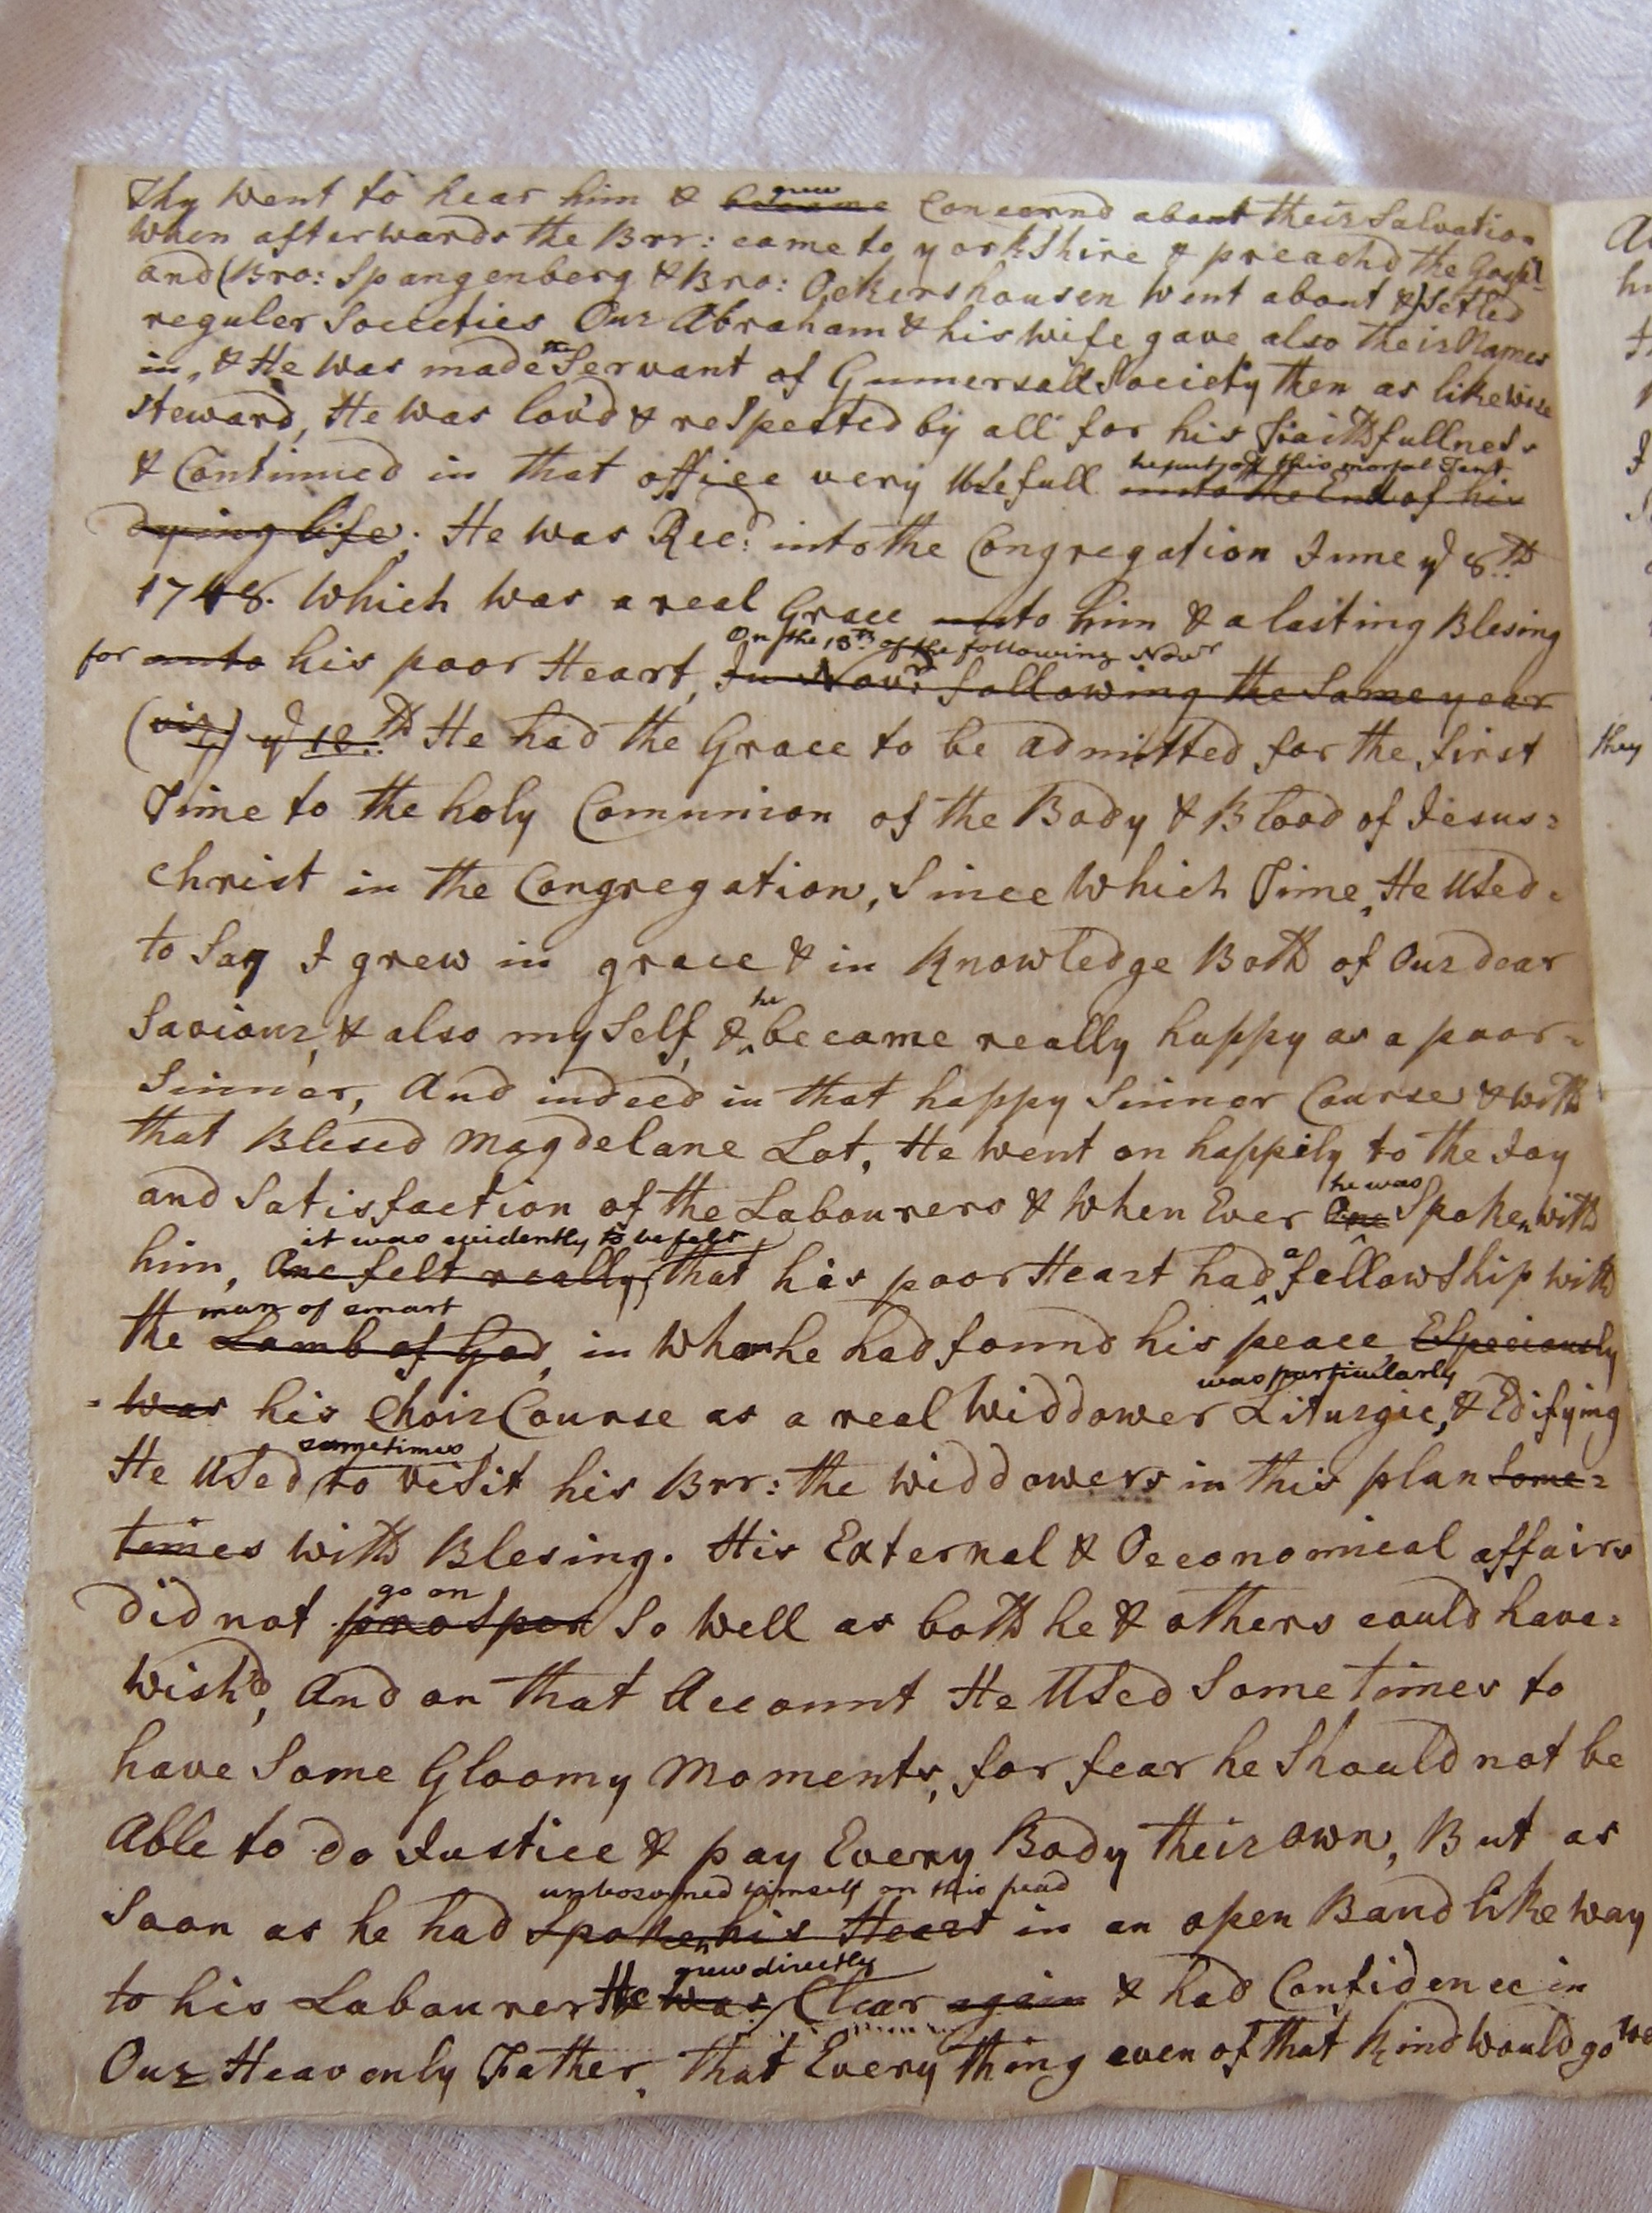 thy went to hear him & became grew Concernd about their Salvation
When afterwards the Brr: came to yorkshire & preachd the Gospl
and (Bro: Spangenberg & Bro: Ockershousen went about &) Setled
reguler Societies Our Abraham & his wife gave also their Names
in, & He was made a Servant of Gumersall Society then as likewise
Steward, He was lovd & respected by all for his Fiaithfullness
he put off this mortal Tent
& Continued in that office very Usefull unto the End of his
dying life; He was Recd: into the Congregation June ye 8th
1748. Which was a real Grace unto him & a lasting Blesing
On the 18th of the following Novr
for unto his poor Heart, In Novr: following the Same year
(viz) ye 18th He had the Grace to be admitted for the first
Time to the holy Comunion of the Body & Blood of Jesus=
Christ in the Congregation, Since Which Time, He Used=
to Say I grew in grace & in Knowledge Both of Our dear
Saviour, & also my Self, & he became really happy as a poor=
Sinner, And indeed in that happy Sinner Course & with
that Blesed Magdelane Lot, He went on happily to the Joy
he was
and Satisfaction of the Labourers & When Ever One Spoken with
it was evidently to be felt
him, One felt really, that his poor Heart had a fellowship with
man of smart
the Lamb of God, in Whom he had found his peace Especiously
was particularly
= was his Choir Course as a real Widdower Liturgic, & Edifying
sometimes
He Used to visit his Brr: the Widdowers in this plan Some=
times with Blesing. His External & Oeconomical affairs
go on
did not prosper So Well as both he & others could have=
Wish'd, And on that Account He Used Some times to
have Some Gloomy Moments, for fear he Should not be
Able to do Justice & pay Every Body their own, But as
unbosomed himself on this head
Soon as he had Spoken his Heart in an open Band like way
grew directly
to his Labourer He was Clear again & had Confidence in
Our Heavenly Father, that Every thing even of that Kind Would go
they